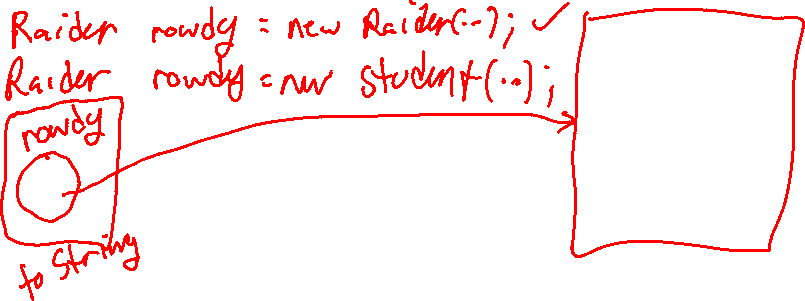 Raider rowdy = new Raider(...); ✓
Raider rowdy = new Student(...);
rowdy
to String